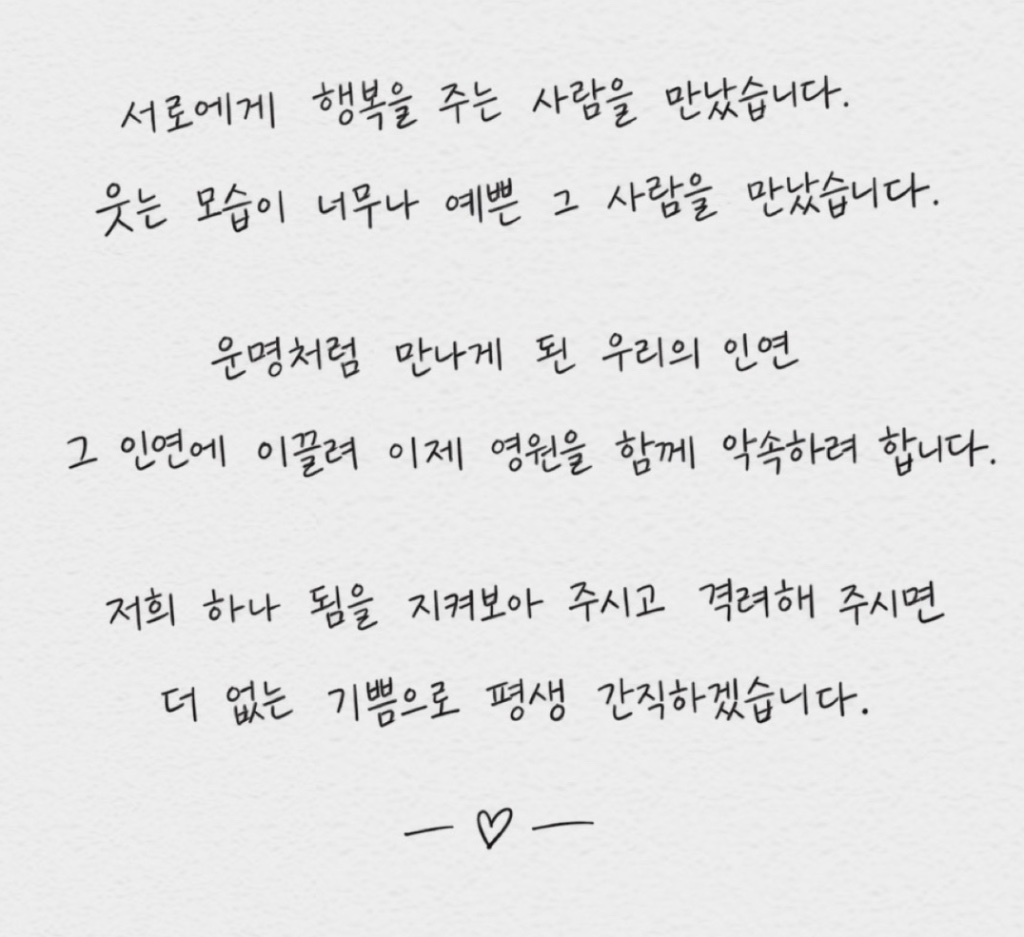 서로에게 행복을 주는 사람을 만났습니다.
웃는 모습이 너무나 예쁜 그 사람을 만났습니다.
운명처럼 만나게 된 우리의 인연
그 인연에 이끌려 이제 영원을 함께 약속하려 합니다.
저희 하나 됨을 지켜보아 주시고 격려해 주시면
더 없는 기쁨으로 평생 간직하겠습니다.
— ♡ —